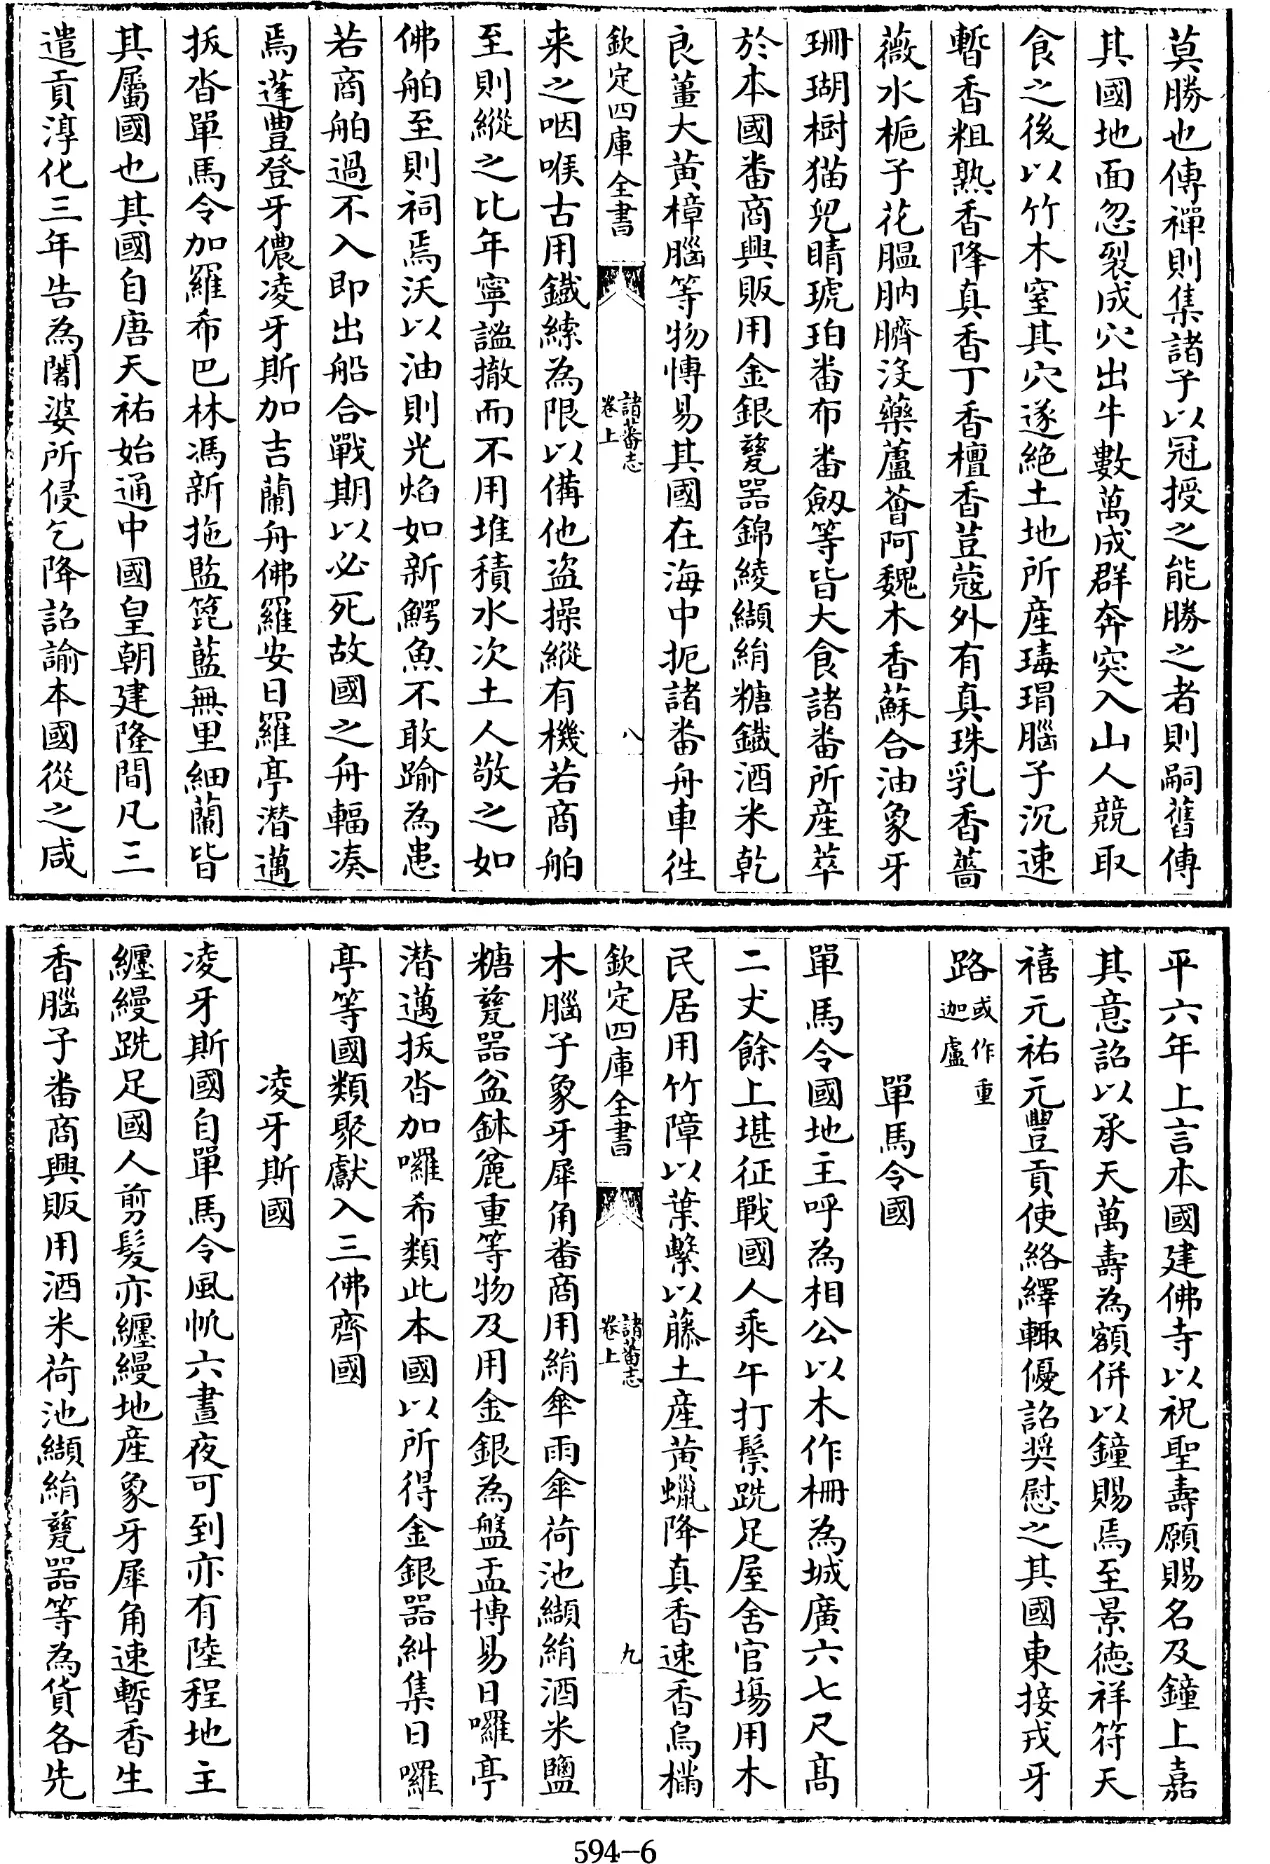 莫勝也傳禪則集諸子以冠授之能勝之者則嗣舊傳
其國地面忽裂成穴出牛數萬成群奔突入山人競取
食之後以竹木窒其穴遂絶土地所產瑇瑁腦子沉速
暫香粗熟香降真香丁香檀香荳蔻外有真珠乳香薔
薇水梔子花膃肭臍沒藥蘆薈阿魏木香蘇合油象牙
珊瑚樹猫兒睛琥珀畨布畨劔等皆大食諸畨所產萃
於本國畨商興販用金銀甆器錦綾纈絹糖鐵酒米乾
良薑大黄樟腦等物愽易其國在海中扼諸畨舟車徃
欽定四庫全書
諸蕃志
卷上
八
来之咽喉古用鐵縤為限以備他盗操縱有機若商舶
至則縱之比年寧謐撤而不用堆積水次土人敬之如
佛舶至則祠焉沃以油則光焰如新鰐魚不敢踰為患
若商舶過不入即出船合戰期以必死故國之舟輻凑
焉蓬豐登牙儂凌牙斯加吉蘭丹佛羅安日羅亭潜邁
拔沓單馬令加羅希巴林馮新拖監箆藍無里細蘭皆
其屬國也其國自唐天祐始通中國皇朝建隆間凡三
遣貢淳化三年告為闍婆所侵乞降詔諭本國從之咸
平六年上言本國建佛寺以祝聖壽願賜名及鐘上嘉
其意詔以承天萬壽為額併以鐘賜焉至景德祥符天
禧元祐元豐貢使絡繹輙優詔奨慰之其國東接戎牙
路或作重
迦盧
單馬令國
單馬令國地主呼為相公以木作柵為城廣六七尺髙
二丈餘上堪征戰國人乘午打鬃跣足屋舍官塲用木
民居用竹障以葉繫以藤土產黄蠟降真香速香烏樠
欽定四庫全書
諸蕃志
卷上
九
木腦子象牙犀角畨商用絹傘雨傘荷池纈絹酒米鹽
糖甆器盆鉢麄重等物及用金銀為盤盂博易日囉亭
潜邁拔沓加囉希類此本國以所得金銀器糾集日囉
亭等國類聚獻入三佛齊國
凌牙斯國
凌牙斯國自單馬令風帆六晝夜可到亦有陸程地主
纏縵跣足國人剪髮亦纏縵地產象牙犀角速暫香生
香腦子畨商興販用酒米荷池纈絹甆器等為貨各先
594-6